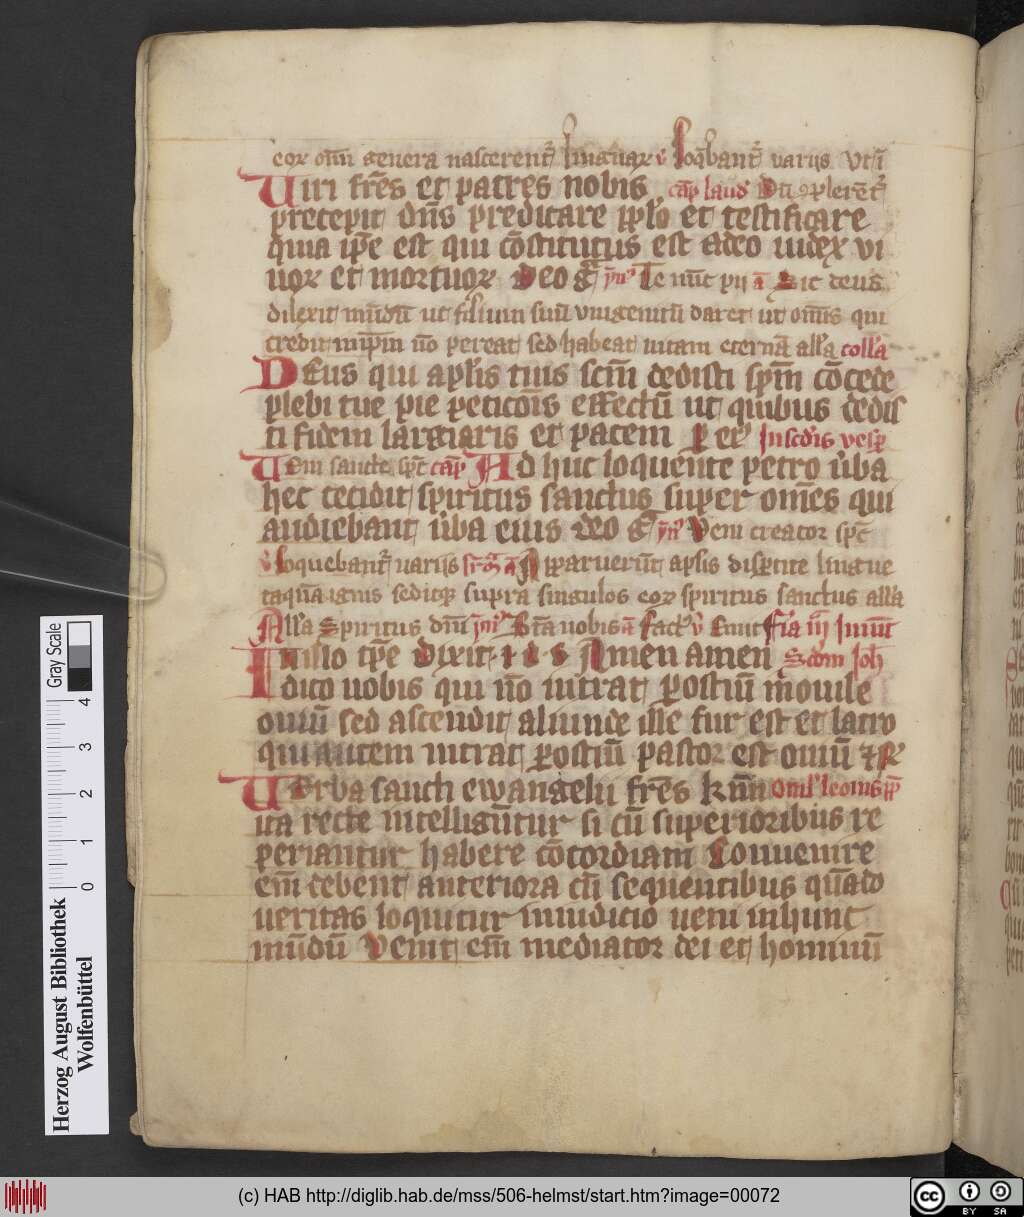 eoꝝ om̅ium genera nascerent᷑ linguaꝝ v̾ loq̅bant᷑ varijs vt i̅
Uiri fr̅es et patres nobis cap̅ laud᷑ Du̅ ꝯplere̅t᷑
precepit dn̅s predicare pp̅lo et testificare
quia ip̅e est qui co̅stitutus est a deo iudex vi
uoꝝ et mortuoꝝ Deo g̅r̅ ym̅ Te nu̅c pii a̅ Sic deus
dilexit mu̅du̅ ut filium suu̅ vnigenitu̅ daret ut om̅is qui
credit in ip̅m no̅ pereat sed habeat uitam eterna̅ all᷑a coll᷑a
DEus qui apl̅is tuis sc̅m dedisti sp̅m co̅cede
plebi tue pie peticois̅ effectu̅ ut quibus dedis
ti fidem largiaris et pacem ꝑ eꝰ In scd̅is vesp̅
Uem sancte sp̅c cap̅ Ad huc loquente petro u̾ba
hec cecidit spiritus sanctus super om̅es qui
audiebant u̾ba eius deo g̅r̅ ym̅ Veni creator sp̅c
v̾ loquebant᷑ uarijs a̅ Apparueru̅t apl̅is disp̅tite lingue
taqua̅ ignis seditqꝫ supra singulos eoꝝ spiritus sanctus all᷑a
All᷑a Spiritus dn̅i inu̅i a̅ fact᷑ v̾ feria iij Inuit̅
In illo tp̅e Dixit i d s Amen amen Scdm Joh̅
dico uobis qui no̅ intrat ꝑ ostiu̅ in ouile
ouiu̅ sed ascendit aliunde ille fur est et latro
qui autem intrat ꝑ ostiu̅ pastor est ouiu̅ ⁊ R̅
Uerba sancti ewangelii fr̅es k̅mi Omil᷑ leonis pp̅
ita recte intelligu̅tur si cu̅ superioribus re
periantur habere co̅cordiam Conuenire
em̅ debent anteriora cu̅ sequentibus qua̅do
ueritas loquitur in iudicio ueni in hunc
mu̅du̅ Venit em̅ mediator dei et hominu̅
Gray Scale
0 1 2 3 4
Herzog August Bibliothek
Wolfenbüttel
(c) HAB http://diglib.hab.de/mss/506-helmst/start.htm?image=00072
cc BY SA